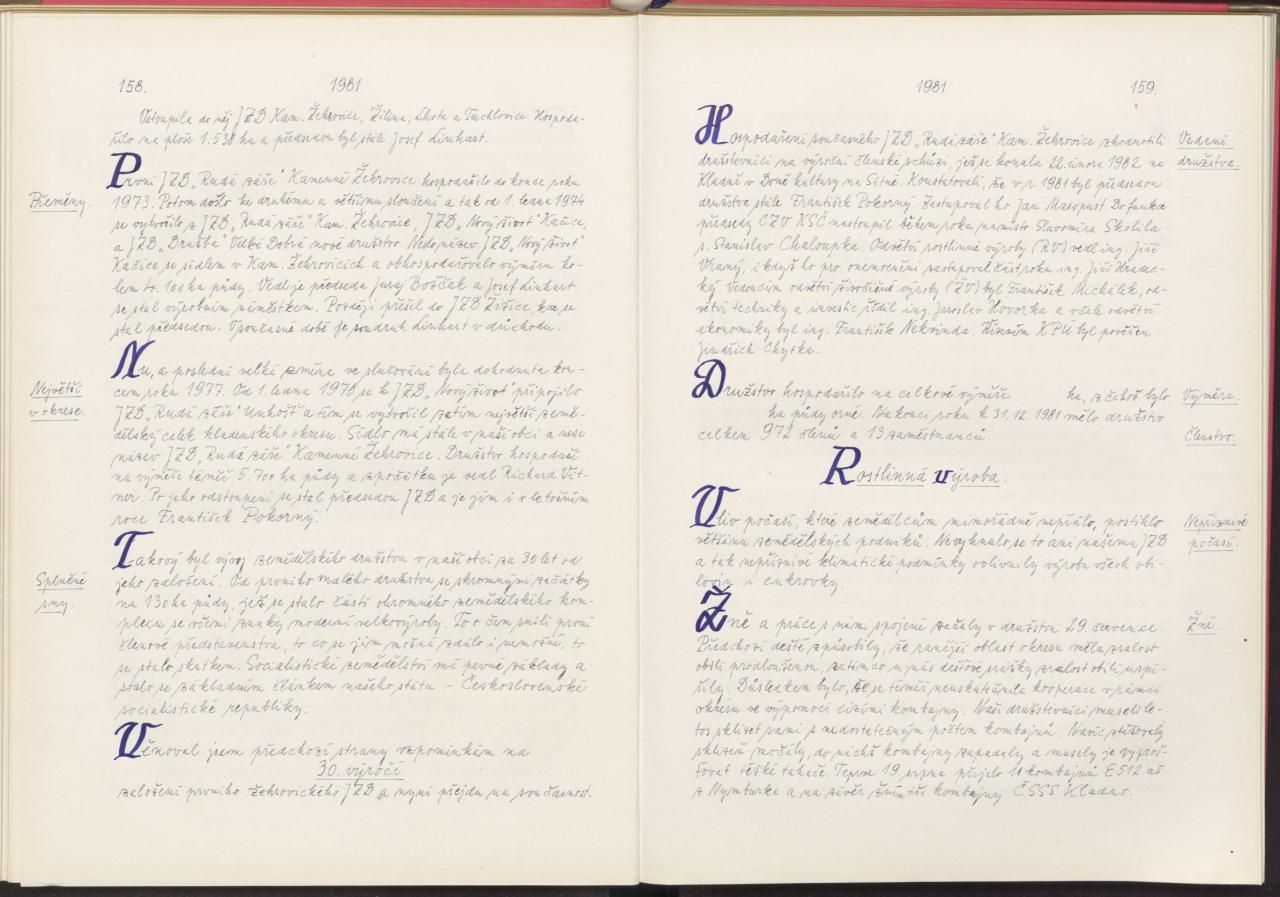 158.
1981
Vstoupila do něj JZD Kam. Žehrovice, Žilina, Lhota a Tuchlovice. Hospoda-
řilo na ploše 1.538 ha a předsedou byl stále Josef Linhart.
Přeměny.
První JZD „Rudá záře" Kamenné Žehrovice hospodařilo do konce roku
1973. Potom došlo ke druhému a většímu sloučení a tak od 1. ledna 1974
se vytvořilo z JZD „Rudá záře" Kam. Žehrovice, JZD „Nový život" Kačice,
a JZD „Družba" Velká Dobrá nové družstvo. Neslo název JZD „Nový život"
Kačice se sídlem v Kam. Žehrovicích a obhospodařovalo výměru ko-
lem 4.100 ha půdy. Vedl je předseda Juraj Božčák a Josef Linhart
se stal výrobním náměstkem. Později přišel do JZD Žižice, kde se
stal předsedou. V současné době je soudruh Linhart v důchodu.
Největší
v okrese.
Nu, a poslední velká změna ve slučování byla dohodnuta kon-
cem roku 1977. Od 1. ledna 1978 se k JZD „Nový život" připojilo
JZD „Rudá záře" Unhošť a tím se vytvořil zatím největší země-
dělský celek kladenského okresu. Sídlo má stále v naší obci a nese
název JZD „Rudá záře" Kamenné Žehrovice. Družstvo hospodaří
na výměře téměř 5.700 ha půdy a zpočátku je vedl Richard Vit-
ner. Po jeho odstoupení se stal předsedou JZD a je jím i v letošním
roce František Pokorný.
Splněné
sny.
Takový byl vývoj zemědělského družstva v naší obci za 30 let od
jeho založení. Od prvního malého družstva se skromnými začátky
na 130 ha půdy, jež se stalo částí ohromného zemědělského kom-
plexu se všemi znaky moderní velkovýroby. To o čem snili první
členové představenstva, to co se jim možná zdálo i nemožné, to
se stalo skutkem. Socialistické zemědělství má pevné základy a
stalo se základním článkem našeho státu – Československé
socialistické republiky.
Věnoval jsem předchozí strany vzpomínkám na
30. výročí
založení prvního žehrovického JZD a nyní přejdu na současnost.
1981
159.
Vedení
družstva.
Hospodaření současného JZD „Rudá záře" Kam. Žehrovice zhodnotili
družstevníci na výroční členské schůzi, jež se konala 22. února 1982 na
Kladně v Domě kultury na Sítné. Konstatovali, že v r. 1981 byl předsedou
družstva stále František Pokorný. Zastupoval ho Jan Masopust. Do funkce
předsedy CZV KSČ nastoupil během roku namísto Slavomíra Skohila
s. Stanislav Chaloupka. Odvětví rostlinné výroby (RV) vedl ing. Jiří
Vraný, i když ho pro onemocnění zastupoval část roku ing. Jiří Hradec-
ký. Vedoucím odvětví živočišné výroby (ŽV) byl František Michálek, od-
větví techniky a investic řídil ing. Jaroslav Hovorka a v čele odvětví
ekonomiky byl ing. František Nekvinda. Řízením KPÚ byl pověřen
Jindřich Chytka.
Výměra.
Družstvo hospodařilo na celkové výměře ha, z čehož bylo
ha půdy orné. Na konci roku k 31. 12. 1981 mělo družstvo
Členstvo.
celkem 972 členů a 13 zaměstnanců.
Rostlinná výroba.
Nepříznivé
počasí.
Vliv počasí, které zemědělcům mimořádně nepřálo, postihlo
většinu zemědělských podniků. Nevyhnulo se to ani našemu JZD
a tak nepříznivé klimatické podmínky ovlivnily výrobu všech obi-
lovin i cukrovky.
Žně.
Žně a práce s nimi spojené začaly v družstvu 29. července.
Předchozí deště způsobily, že ranější oblast okresu měla zralost
obilí prodlouženou, zatímco u nás dešťové srážky zralost obilí uspí-
šily. Důsledkem bylo, že se téměř neuskutečnila kooperace v rámci
okresu ve výpomoci cizími kombajny. Naši družstevníci museli le-
tos sklízet sami s nedostatečným počtem kombajnů. Navíc ztěžovaly
sklizeň močály, do nichž kombajny zapadaly a musely je vyproš-
ťovat těžké tahače. Teprve 19. srpna přijelo 11 kombajnů E 512 až
z Nymburka a na závěr žní tři kombajny ČSSS Kladno.